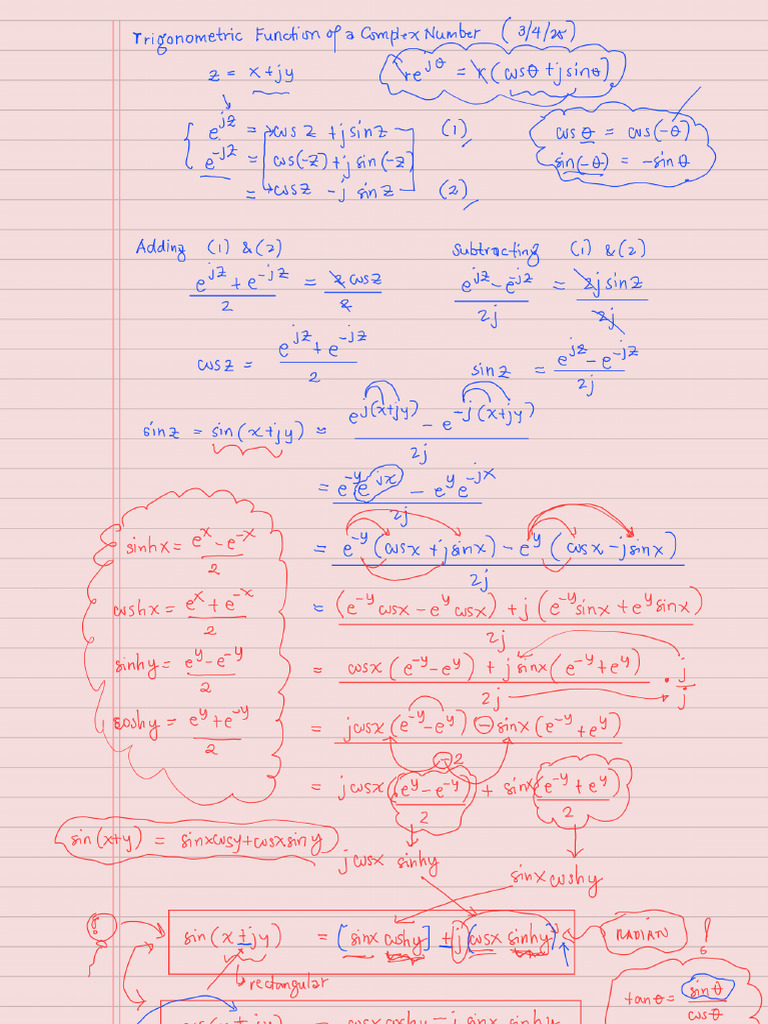 Trigonometric Function of a Complex Number (3/4/25)
z = x+jy
re^{jθ} = r(cosθ+jsinθ)
e^{jz} = cos z + j sin z (1)
e^{-jz} = cos(-z) + j sin(-z)
= cos z - j sin z (2)
cos θ = cos(-θ)
sin(-θ) = -sin θ
Adding (1) & (2)
(e^{jz} + e^{-jz})/2 = 2cosz/2
cosz = (e^{jz} + e^{-jz})/2
Subtracting (1) & (2)
(e^{jz} - e^{jz})/2j = 2j sin z/2j
sin z = (e^{jz} - e^{-jz})/2j
sin z = sin(x+jy) = (e^{j(x+jy)} - e^{-j(x+jy)})/2j
= (e^{-y}e^{jx} - e^{y}e^{-jx})/2j
= (e^{-y}(cosx + jsinx) - e^{y}(cosx - jsinx))/2j
= ((e^{-y}cosx - e^{y}cosx) + j(e^{-y}sinx + e^{y}sinx))/2j
= (cosx(e^{-y} - e^{y}) + jsinx(e^{-y} + e^{y}))/2j · j/j
= (jcosx(e^{-y} - e^{y}) - sinx(e^{-y} + e^{y}))/-2
= jcosx (e^{y} - e^{-y})/2 + sinx (e^{-y} + e^{y})/2
sinhx = (e^{x} - e^{-x})/2
coshx = (e^{x} + e^{-x})/2
sinhy = (e^{y} - e^{-y})/2
coshy = (e^{y} + e^{-y})/2
sin(x+y) = sinxcosy+cosxsiny
jcosx sinhy
sinx coshy
sin(x±jy) = [sinx coshy] ± j(cosx sinhy)
RADIAN !
rectangular
tanθ = sinθ/cosθ